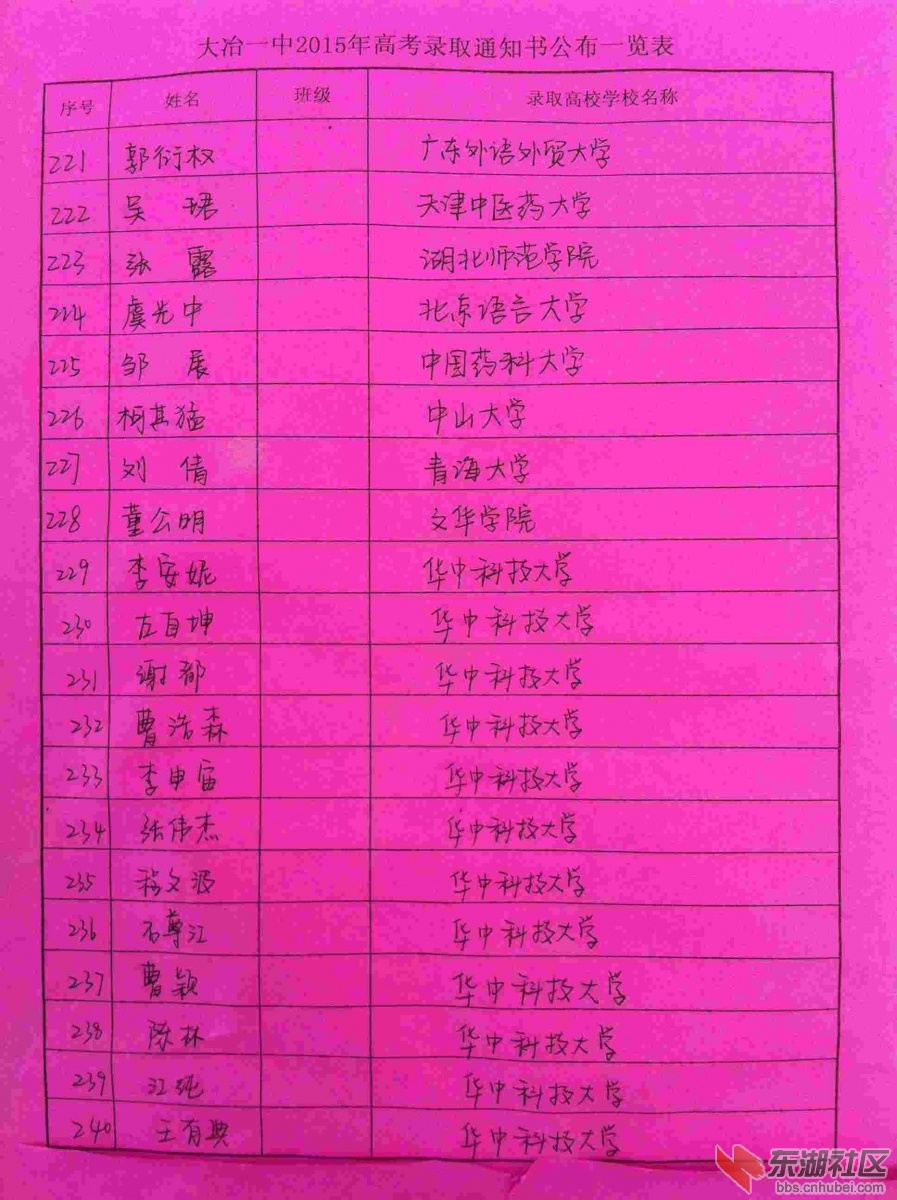 大冶一中2015年高考录取通知书公布一览表
序号 姓名 班级 录取高校学校名称
221 郭衍权 广东外语外贸大学
222 吴珺 天津中医药大学
223 张露 湖北师范学院
224 虞先中 北京语言大学
225 邹展 中国药科大学
226 柯其猛 中山大学
227 刘倩 青海大学
228 董公明 文华学院
229 李安妮 华中科技大学
230 左自坤 华中科技大学
231 谢都 华中科技大学
232 曹浩森 华中科技大学
233 李申宙 华中科技大学
234 张伟杰 华中科技大学
235 华中科技大学
236 石尊江 华中科技大学
237 曹颖 华中科技大学
238 陈林 华中科技大学
239 江纯 华中科技大学
240 华中科技大学
东湖社区
bbs.cnhubei.com